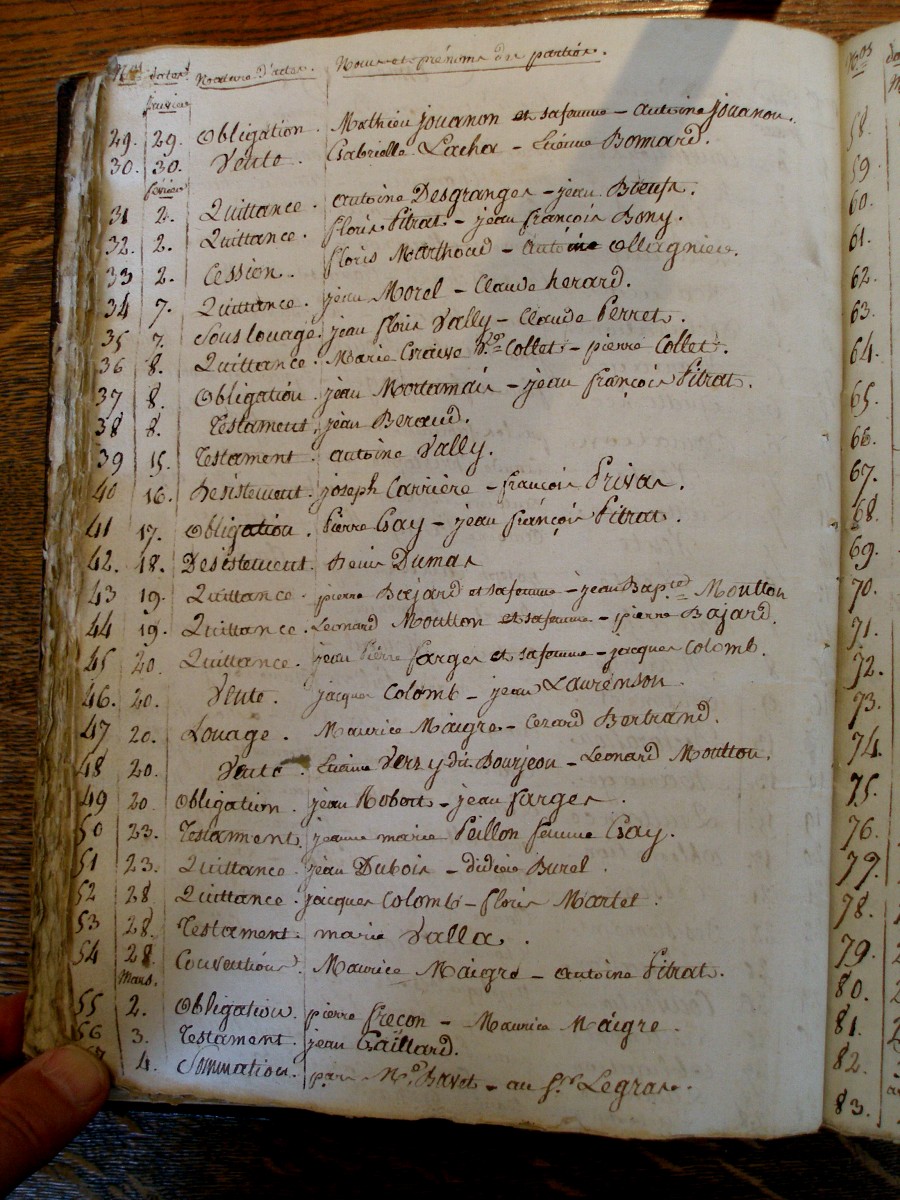 Nos dates Nature d'actes. Noms et prénoms des parties.
janvier
29. 29. Obligation. Mathieu jouanon et sa femme - antoine jouanon.
30. 30. Vente. Gabrielle Lacha - Etienne Bonnard.
février
31 2. Quittance. antoine Desgranges - jean Boeuf.
32. 2. Quittance. floris Pitrat - jean françois Bony.
33 2. Cession. floris Marthoud - antoine ollagnier.
34 7. Quittance. jean Morel - Claude herard.
35 7. Sous louage. jean floris Vally - Claude Perret.
36 8. Quittance. Marie Collet - pierre Collet.
37 8. Obligation. jean Mortamais - jean françois Pitrat.
38 8. Testament. jean Beraud.
39 15. Testament. antoine Vally.
40 16. Desistement. joseph Carriere - françois Privas.
41 17. Obligation. Pierre Gay - jean françois Pitrat.
42. 18. Desistement. Denis Dumas
43 19. Quittance. pierre Bajard et sa femme - jean Bapted Moulton
44 19. Quittance. Leonard Moulton et sa femme - pierre Bajard.
45 20. Quittance. jean Pierre farges et sa femme - jacques Colomb.
46. 20. Vente. jacques Colomb - jean Laurenson
47 20. Louage. Maurice Maigre - Cezard Bertrand.
48 20. Vente. Etienne Verzy dit Bourjeon - Leonard Moulton.
49 20. Obligation. jean Robert - jean farges.
50 23. Testament. jeanne marie Peillon femme Gay.
51 23. Quittance. jean Dubois - didier Burel.
52 28 Quittance. jacques Colomb - floris Martel.
53 28. Testament. marie Valla.
54 28. Conventions. Maurice Maigre - antoine Pitrat.
Mars.
55 2. Obligation. pierre freçon - Maurice Maigre.
56 3. Testament. jean Gaillard.
4. Sommation. par Bavet - au sr Legras.
Nos
58.
59.
60.
61.
62.
63.
64.
65.
66.
67.
68.
69.
70.
71.
72.
73.
74.
75.
76.
77.
78.
79.
80.
81.
82.
83.